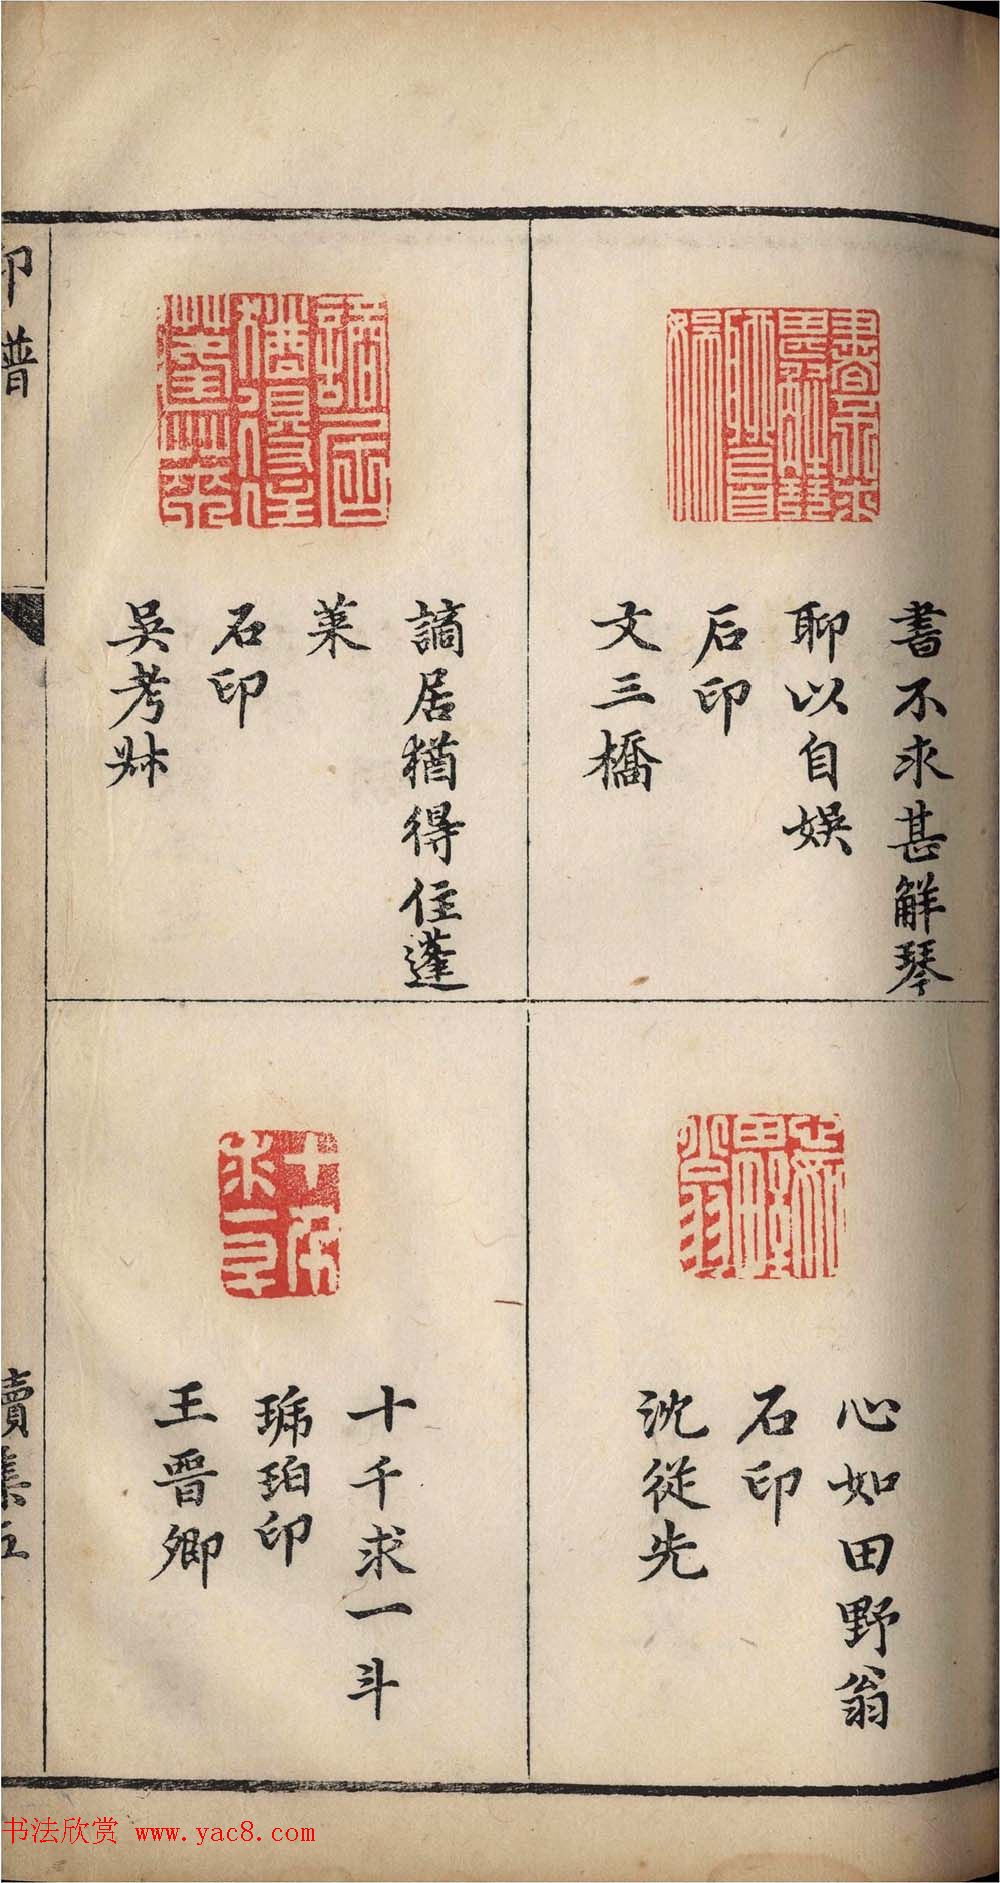 書不求甚解琴
聊以自娛
石印
文三橋
心如田野翁
石印
沈從先
謫居猶得住蓬
萊
石印
吳考叔
十千求一斗
琥珀印
王晉卿
印譜
續集五
书法欣赏 www.yac8.com